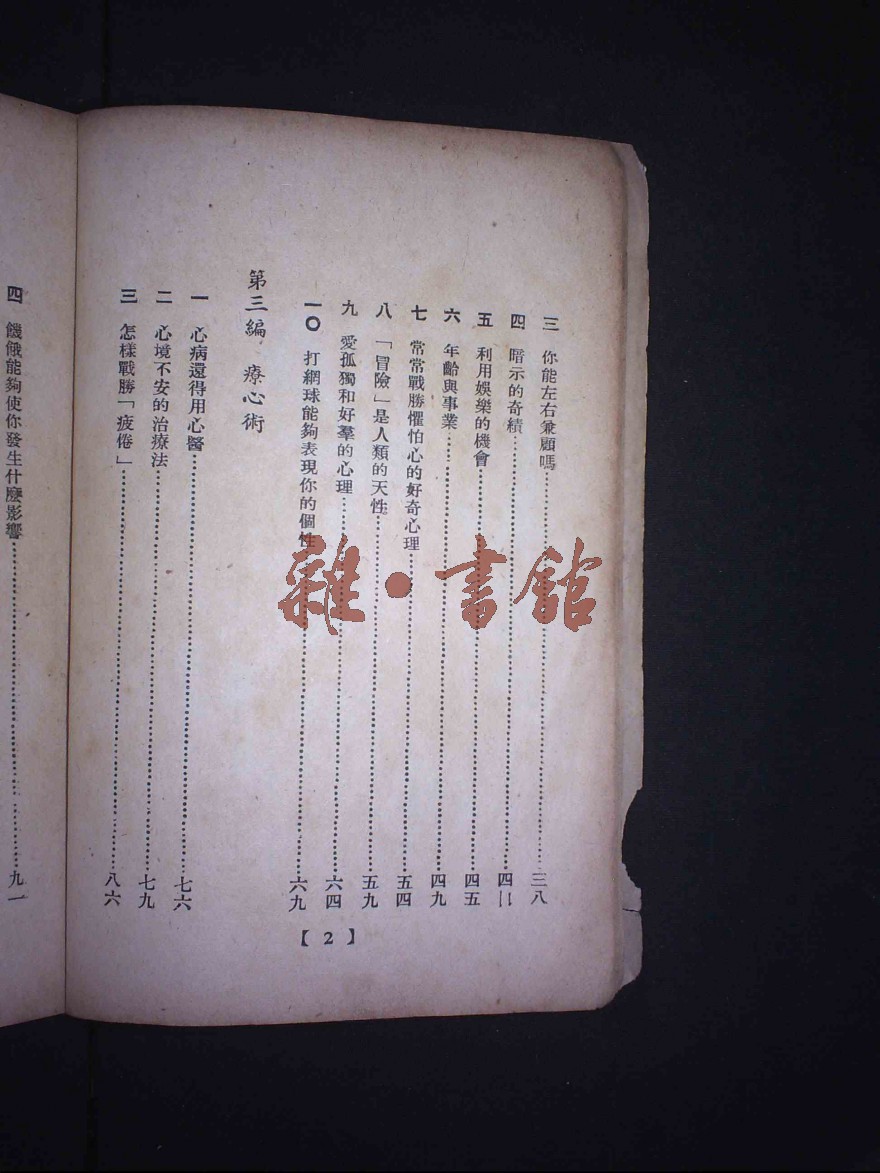 三　你能左右兼顧嗎……三八
四　暗示的奇績……四二
五　利用娛樂的機會……四五
六　年齡與事業……四九
七　常常戰勝懼怕心的好奇心理……五四
八　「冒險」是人類的天性……五九
九　愛孤獨和好羣的心理……六四
一〇　打網球能夠表現你的個性……六九
第三編　療心術
一　心病還得用心醫……七六
二　心境不安的治療法……七九
三　怎樣戰勝「疲倦」……八六
【2】
四　饑餓能夠使你發生什麼影響……九一
雜·書館